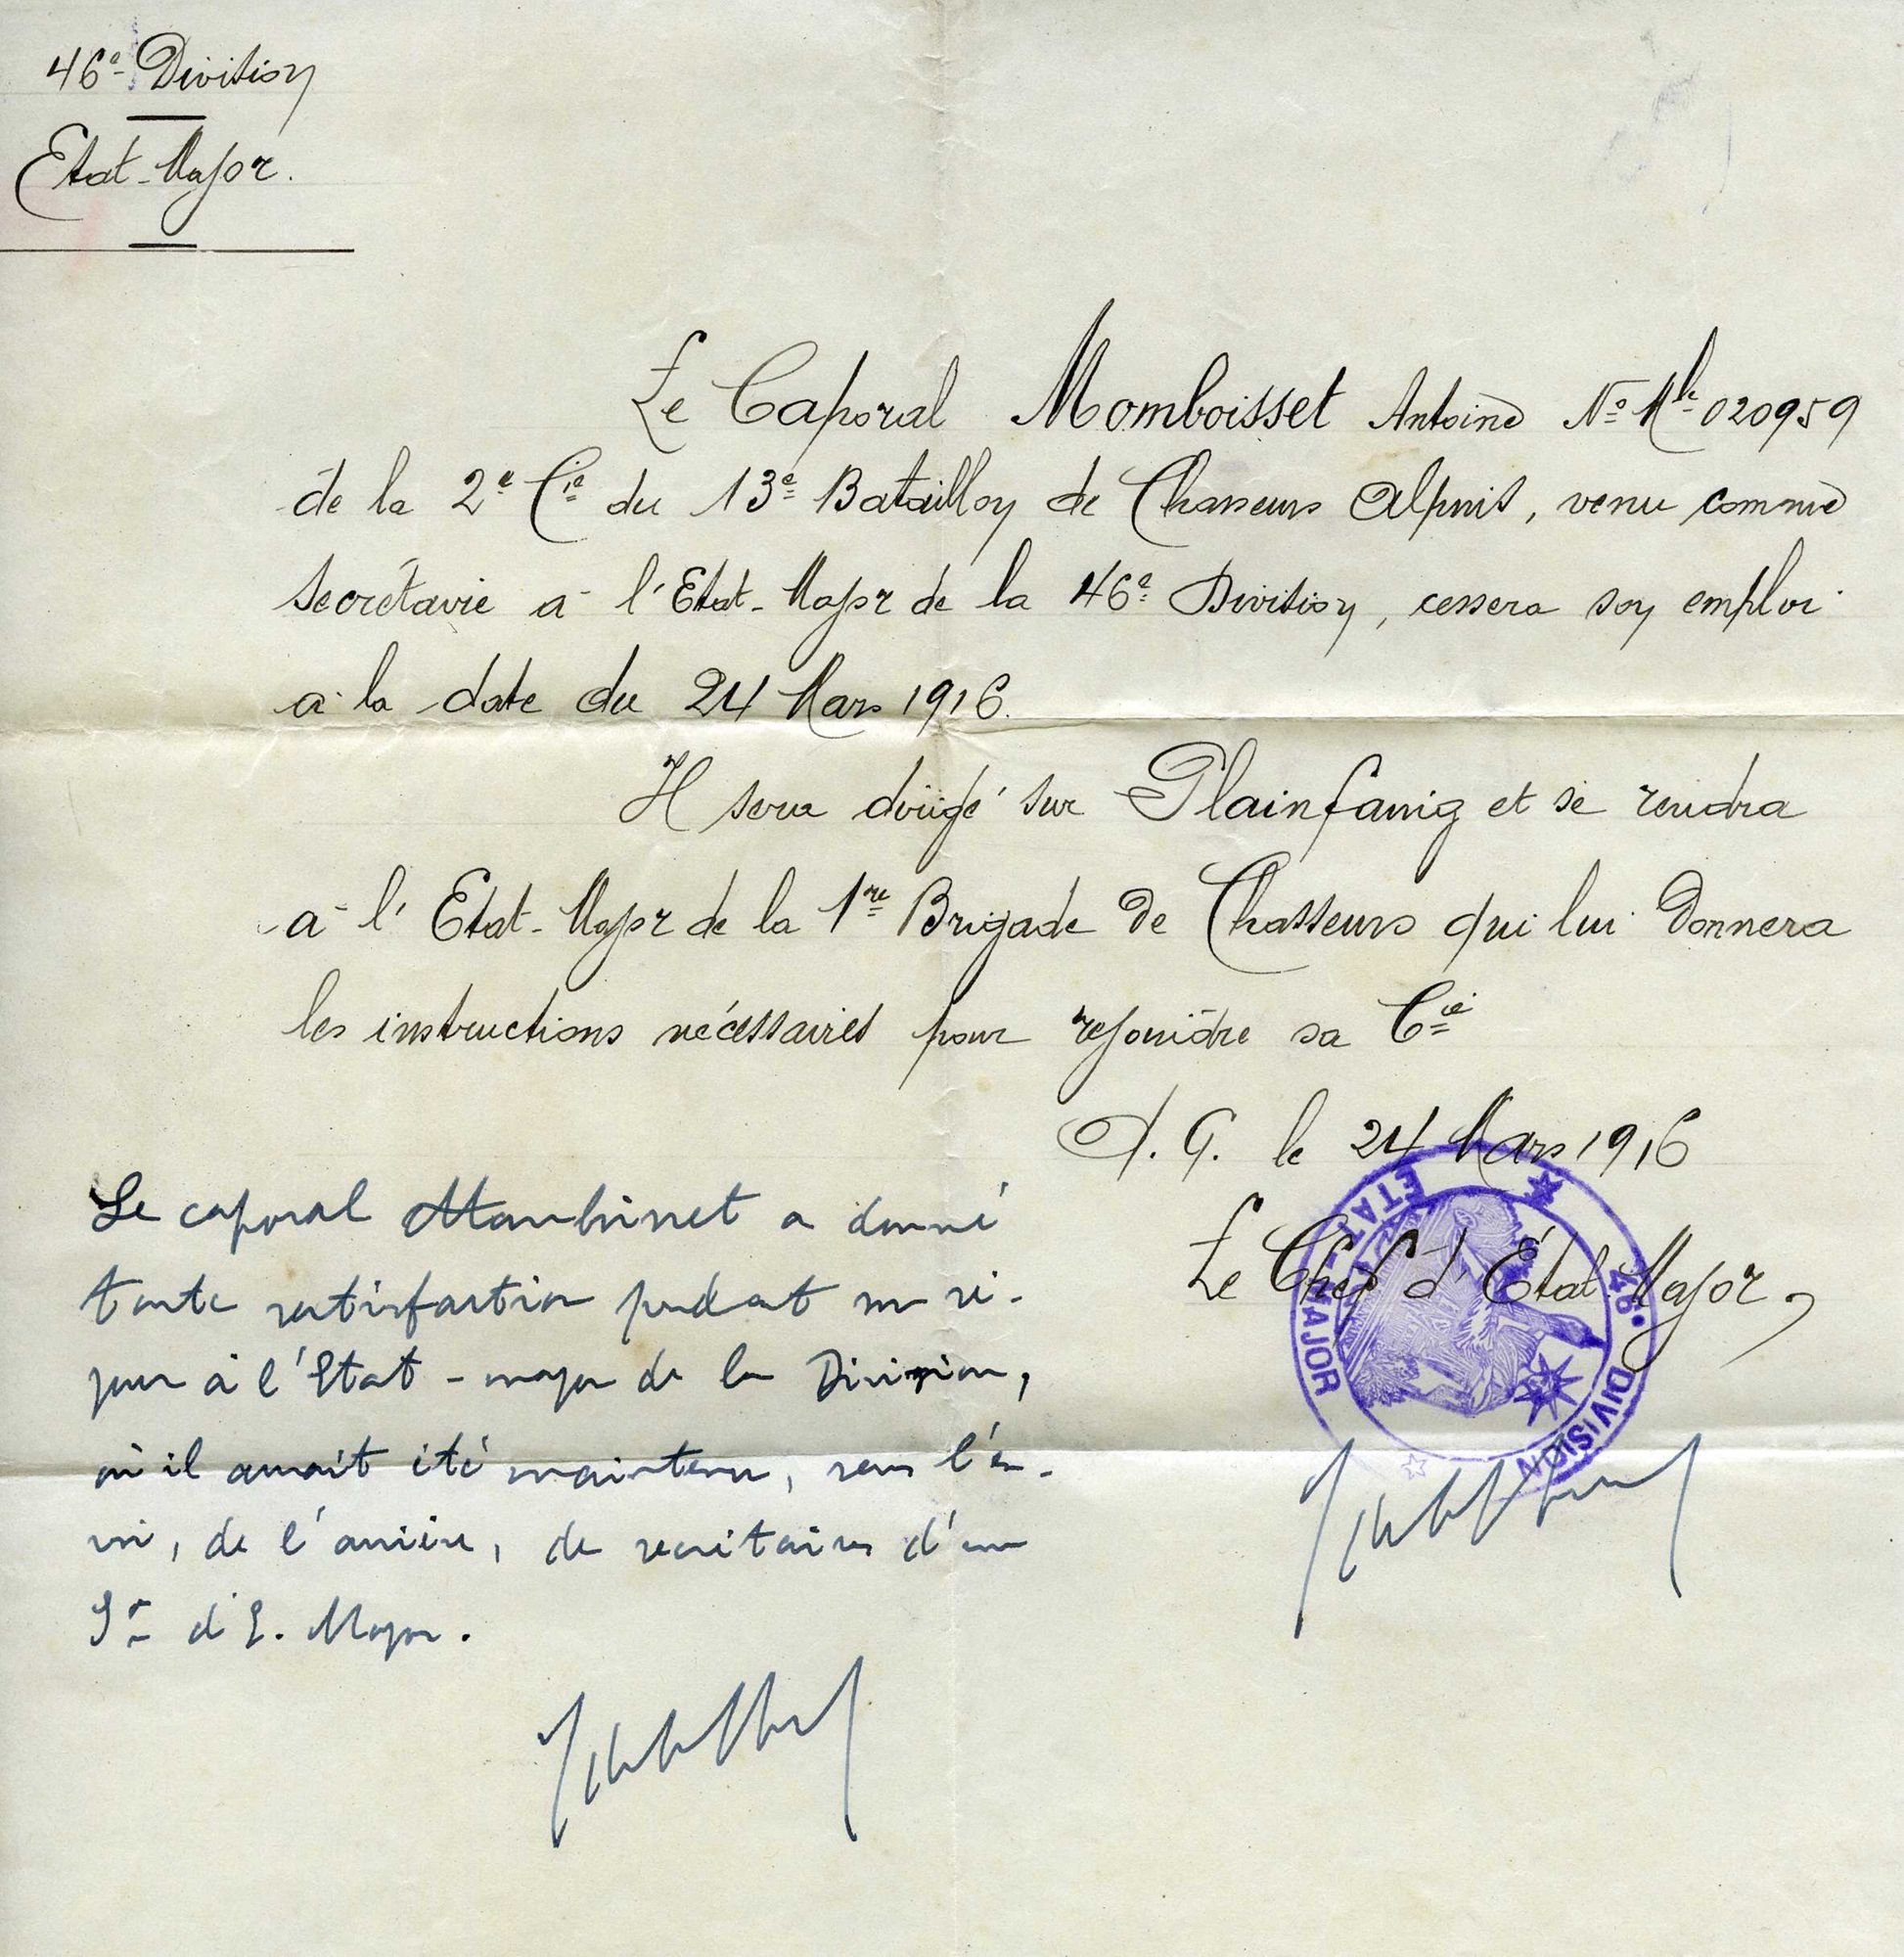 46e Division
Etat-Major.
Le Caporal Momboisset Antoine No Mle 020959
de la 2e Cie du 13e Bataillon de Chasseurs Alpins, venu comme
secrétaire à l'Etat-Major de la 46e Division, cessera son emploi
à la date du 24 Mars 1916.
Il sera dirigé sur Plainfaing et se rendra
à l'Etat-Major de la 1re Brigade de Chasseurs qui lui donnera
les instructions nécessaires pour rejoindre sa Cie
Q. G. le 24 Mars 1916
Le Chef d'État-Major,
46e DIVISION
ETAT-MAJOR
Le caporal Momboisset a donné
toute satisfaction pendant son sé-
jour à l'Etat-major de la Division,
où il aurait été maintenu, sans l'en-
voi, de l'arrière, de secrétaires d'une
Son d'E. Major.